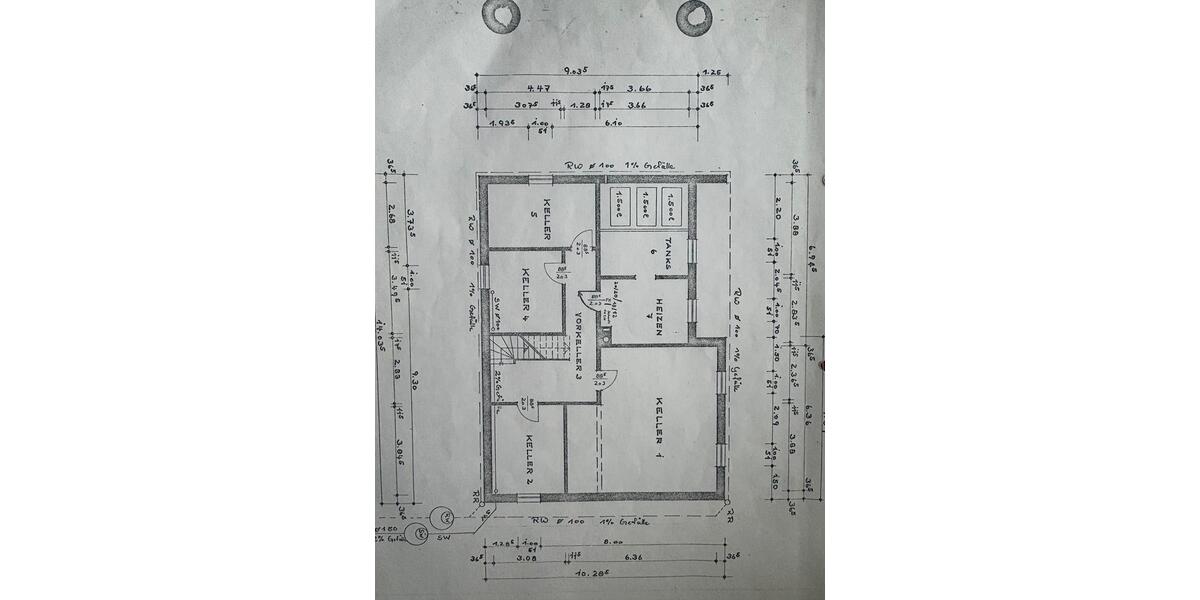 9.03⁵
1.25
36⁵
4.47
17⁵
3.66
36⁵
36⁵
3.07⁵
11⁵
1.28
17⁵
3.66
36⁵
1.93⁵
1.00
51
6.10
RW ø 100 1% Gefälle
KELLER
5
1.500ℓ
1.500ℓ
1.500ℓ
TANKS
6
KELLER 4
SW ø 100
88⁵
2.03
88⁵
2.03
88⁵
2.03
HEIZEN
7
VORKELLER 3
2% Gefälle
88⁵
2.03
88⁵
2.03
KELLER 1
KELLER 2
RW ø 100 1% Gefälle
RW ø 100 1% Gefälle
36⁵
2.68
11⁵
3.49⁵
11⁵
2.83
11⁵
3.04⁵
36⁵
3.73⁵
1.00
51
9.30
14.03⁵
36⁵
2.20
1.00
51
2.04⁵
1.00
70
1.50
1.00
51
2.09
1.00
51
1.50
3.88
11⁵
2.83⁵
11⁵
2.36⁵
11⁵
3.88
36⁵
6.94⁵
36⁵
6.36
RR
RR
RW ø 100 1% Gefälle
SW
1.28⁵
1.00
51
8.00
36⁵
3.08
11⁵
6.36
36⁵
10.28⁵